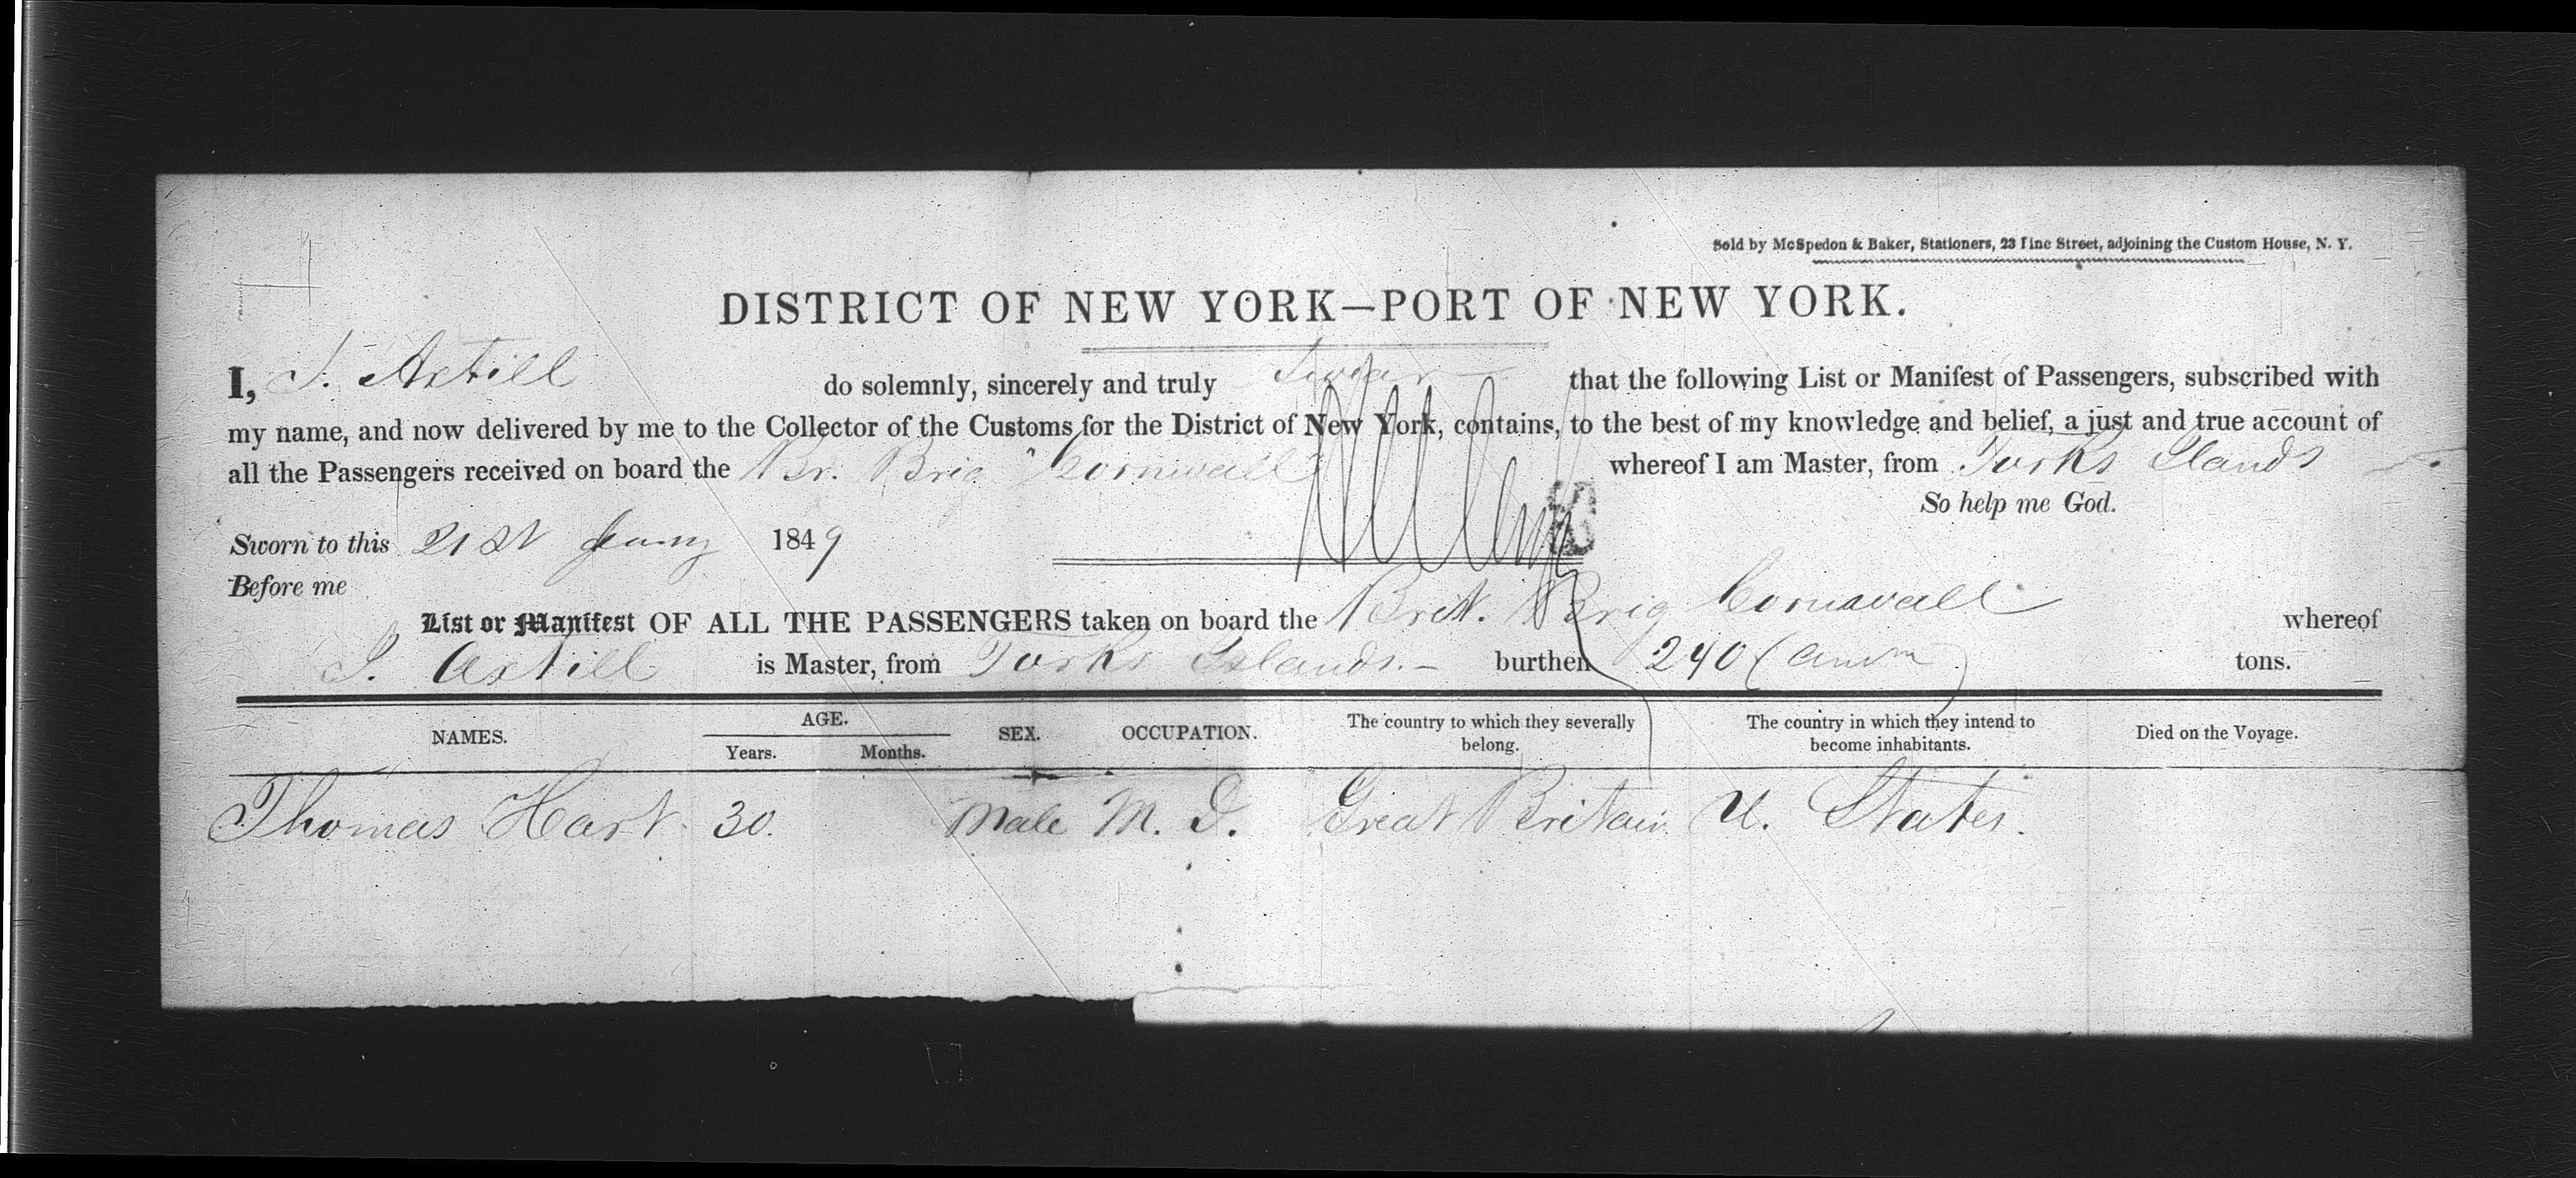 Sold by McSpedon & Baker, Stationers, 23 Pine Street, adjoining the Custom House, N. Y.
DISTRICT OF NEW YORK—PORT OF NEW YORK.
I, J. Axtill do solemnly, sincerely and truly Swear that the following List or Manifest of Passengers, subscribed with
my name, and now delivered by me to the Collector of the Customs for the District of New York, contains, to the best of my knowledge and belief, a just and true account of
all the Passengers received on board the Br. Brig "Cornwall" whereof I am Master, from Turks Ilands
So help me God.
Sworn to this 21st 1849
Before me
List or Manifest OF ALL THE PASSENGERS taken on board the Brit. Brig Cornwall whereof
J. Axtill is Master, from Turks Islands.- burthen 240 tons.
NAMES. AGE. Years. Months. SEX. OCCUPATION. The country to which they severally belong. The country in which they intend to become inhabitants. Died on the Voyage.
Thomas Hart. 30. Male M. D. Great Britain U. States.